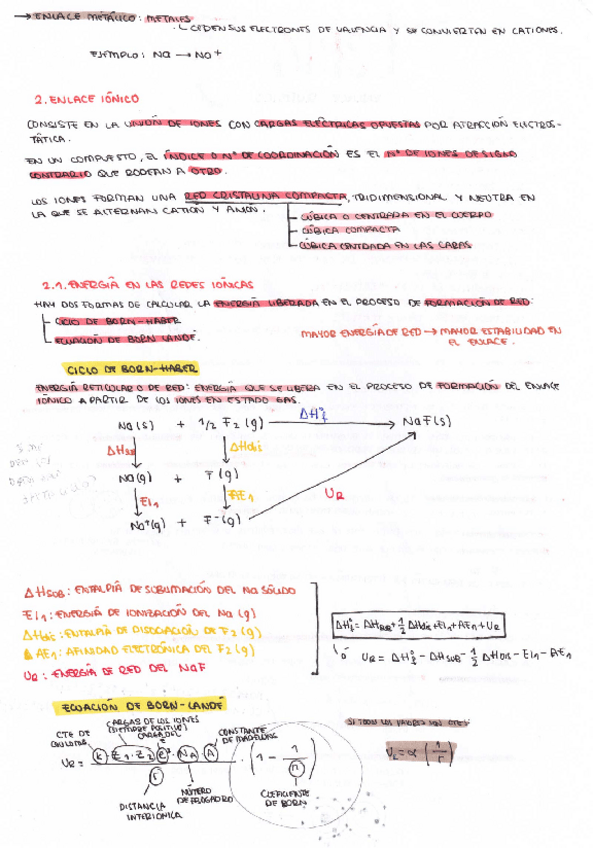 → ENLACE METÁLICO: METALES
CEDEN SUS ELECTRONES DE VALENCIA Y SE CONVIERTEN EN CATIONES.
EJEMPLO: Na → Na+
2. ENLACE IÓNICO
CONSISTE EN LA UNIÓN DE IONES CON CARGAS ELÉCTRICAS OPUESTAS POR ATRACCIÓN ELECTROS-
TÁTICA.
EN UN COMPUESTO, EL ÍNDICE O Nº DE COORDINACIÓN ES EL Nº DE IONES DE SIGNO
CONTRARIO QUE RODEAN A OTRO.
LOS IONES FORMAN UNA RED CRISTALINA COMPACTA, TRIDIMENSIONAL Y NEUTRA EN
LA QUE SE ALTERNAN CATIÓN Y ANIÓN.
CÚBICA O CENTRADA EN EL CUERPO
CÚBICA COMPACTA
CÚBICA CENTRADA EN LAS CARAS
2.1. ENERGÍA EN LAS REDES IÓNICAS
HAY DOS FORMAS DE CALCULAR LA ENERGÍA LIBERADA EN EL PROCESO DE FORMACIÓN DE RED:
CICLO DE BORN-HABER
ECUACIÓN DE BORN LANDÉ.
MAYOR ENERGÍA DE RED → MAYOR ESTABILIDAD EN
EL ENLACE.
CICLO DE BORN-HABER
ENERGÍA RETICULAR O DE RED: ENERGÍA QUE SE LIBERA EN EL PROCESO DE FORMACIÓN DEL ENLACE
IÓNICO A PARTIR DE LOS IONES EN ESTADO GAS.
Na(s) + 1/2 F2(g) ΔH°f NaF(s)
ΔHsub ΔHdis
Na(g) + F(g)
EI1 AE1 UR
Na+(g) + F-(g)
ΔHSUB: ENTALPÍA DE SUBLIMACIÓN DEL Na SÓLIDO
EI1: ENERGÍA DE IONIZACIÓN DEL Na (g)
ΔHdis: ENTALPÍA DE DISOCIACIÓN DE F2(g)
AE1: AFINIDAD ELECTRÓNICA DEL F2(g)
UR: ENERGÍA DE RED DEL NaF
ΔH°f = ΔHSUB + 1/2 ΔHdis + EI1 + AE1 + UR
ó UR = ΔH°f - ΔHSUB - 1/2 ΔHDIS - EI1 - AE1
ECUACIÓN DE BORN-LANDÉ
CARGAS DE LOS IONES
(SIEMPRE POSITIVO)
CTE DE
COULOMB
CARGA DEL
e-
CONSTANTE
DE MADELUNG
UR = K · Z1 · Z2 · e² · NA · A / r · (1 - 1/n)
DISTANCIA
INTERIÓNICA
NÚMERO
DE AVOGADRO
COEFICIENTE
DE BORN
SI TODOS LOS VALORES SON CTES:
UR = α (1/r)